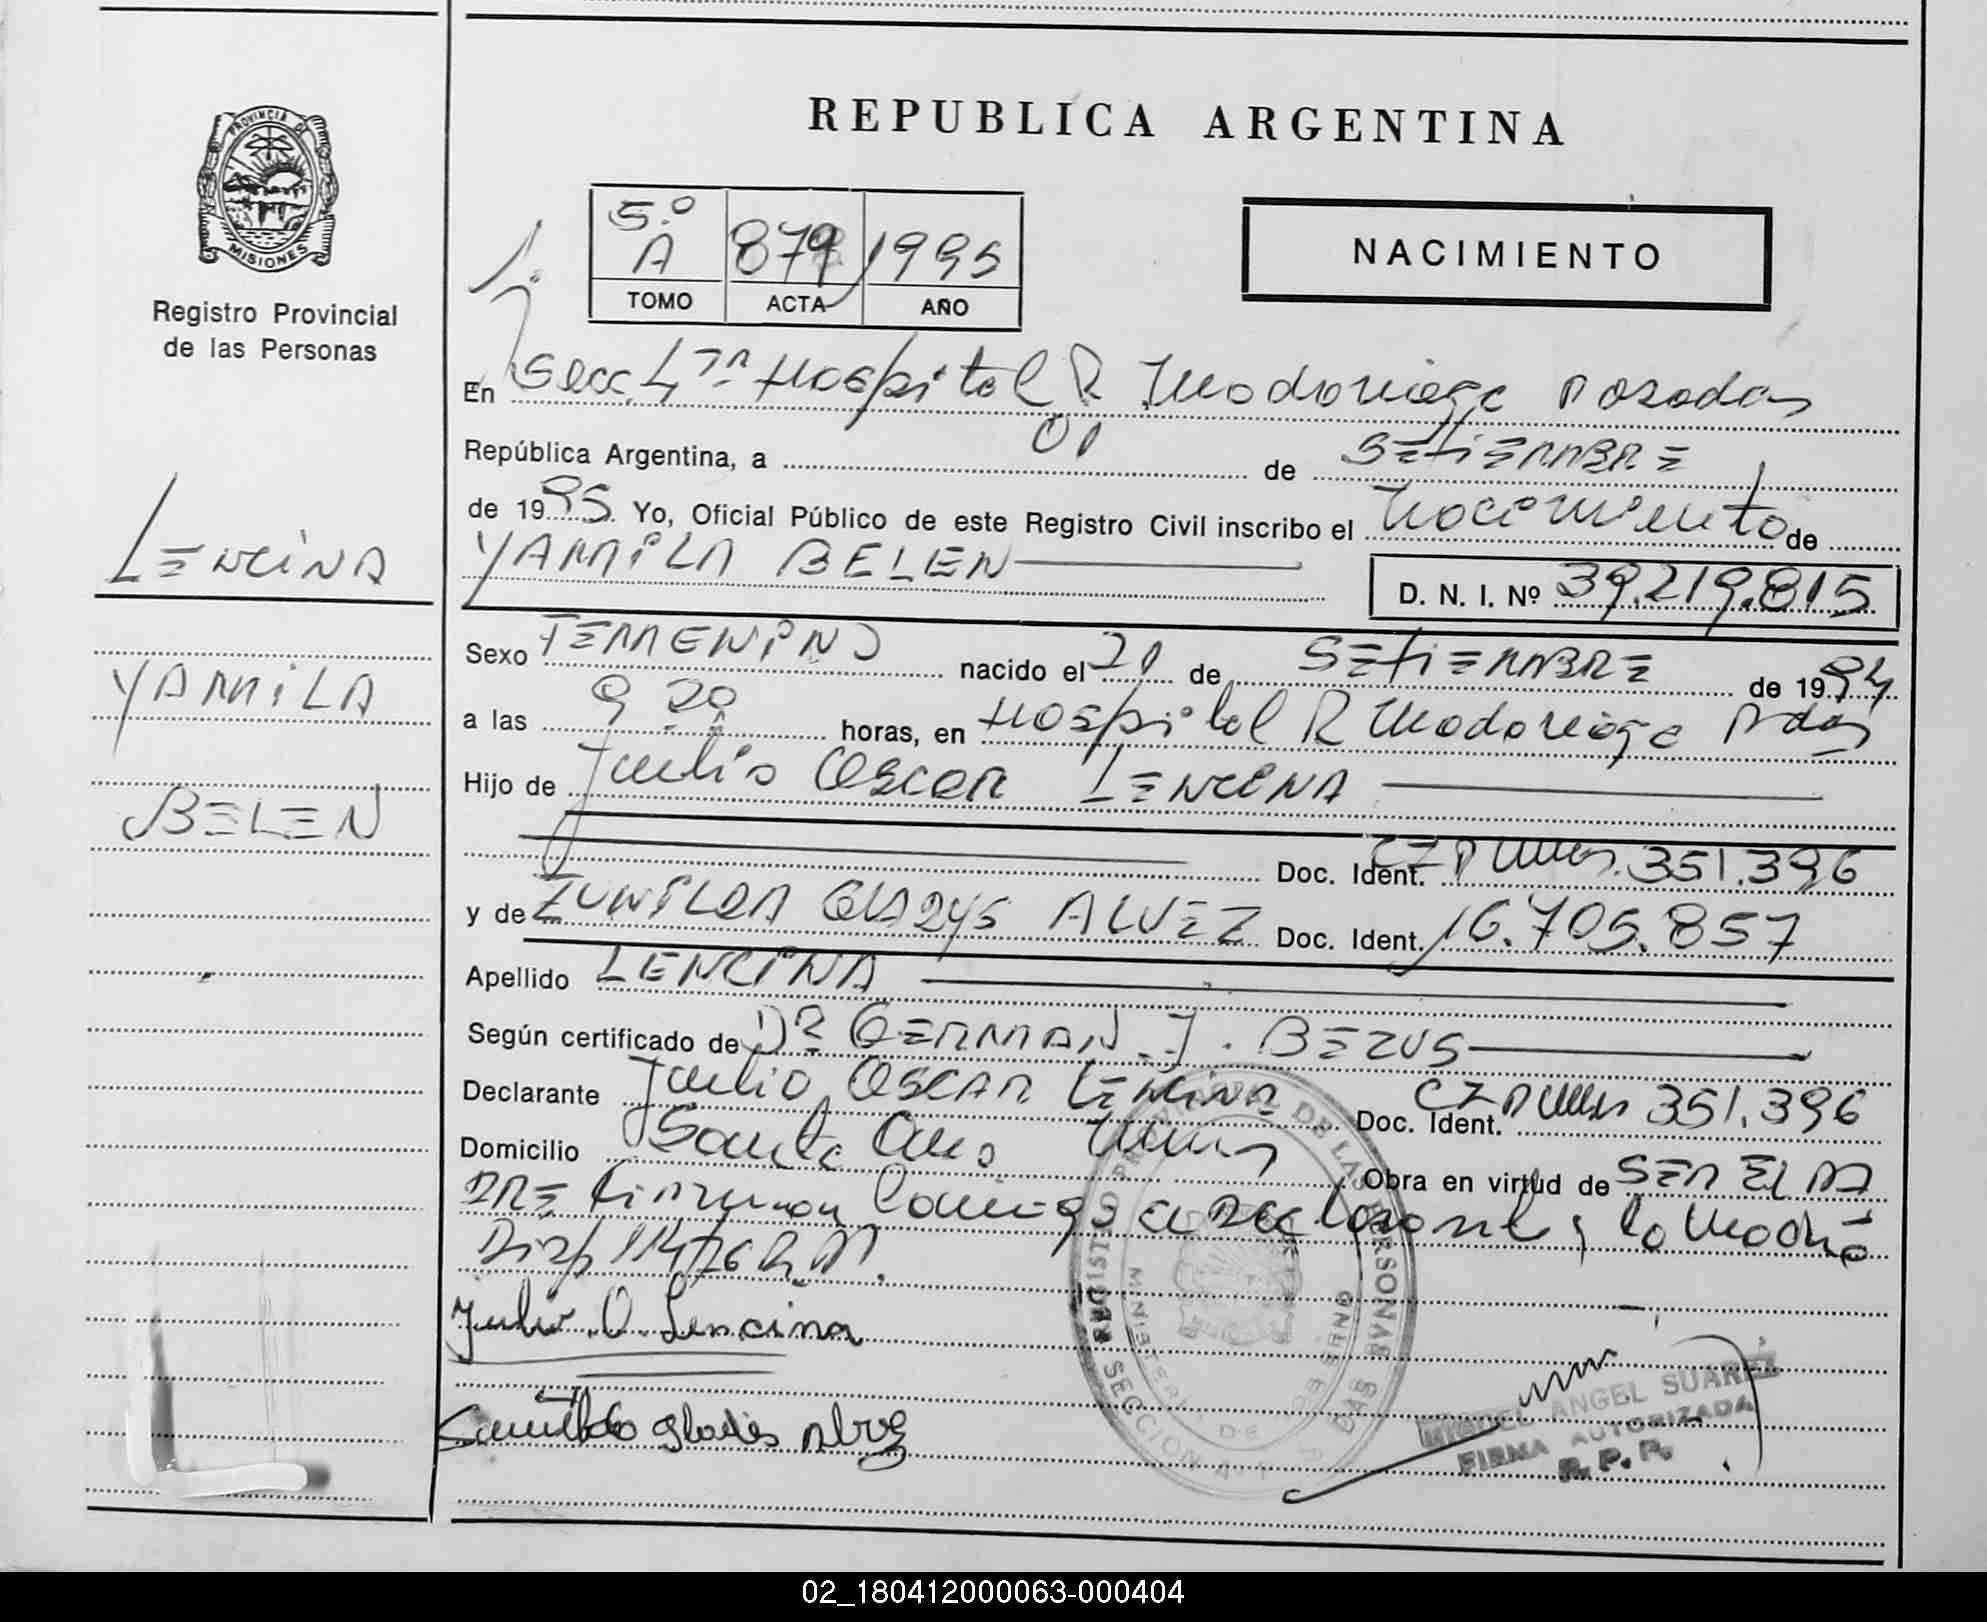 REPUBLICA ARGENTINA
PROVINCIA DE MISIONES
Registro Provincial
de las Personas
5.º
A 879 1995
TOMO ACTA AÑO
NACIMIENTO
En Secc. 4ª Hospital R Madariaga Posadas
República Argentina, a 01 de SETIEMBRE
de 1995. Yo, Oficial Público de este Registro Civil inscribo el Nacimiento de
YAMILA BELEN
D. N. I. Nº 39.219.815
LENCINA
YAMILA
BELEN
Sexo FEMENINO nacido el de SETIEMBRE de 1994
a las 9 20 horas, en Hospital R Madariaga Pdas
Hijo de Julio OSCAR LENCINA
Doc. Ident. Mnes. 351.396
y de ZUNILDA GLADYS ALVEZ Doc. Ident. 16.705.857
Apellido LENCINA
Según certificado de Dr GERMAN J. BEZUS
Declarante Julio OSCAR LENCINA Doc. Ident. Mnes 351.396
Domicilio Santa Ana Mnes
Obra en virtud de SER EL PA
DRE la Madre
Disp 114/76 R.P.
Julio O. Lencina
gladis alvez
REGISTRO PROVINCIAL DE LAS PERSONAS
MINISTERIO DE GOBIERNO
SECCION 4
MIGUEL ANGEL SUAREZ
FIRMA AUTORIZADA
R. P. P.
02_180412000063-000404